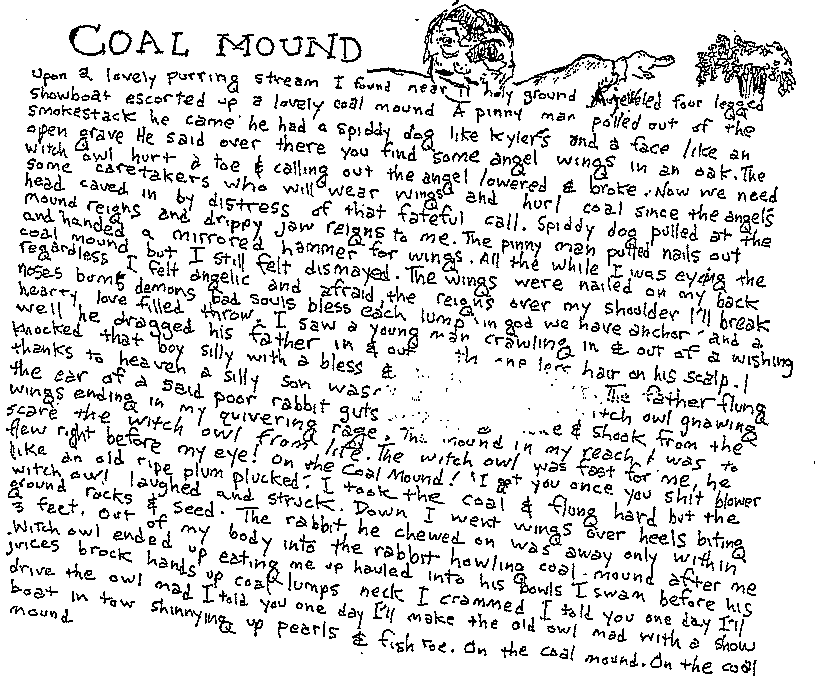 COAL MOUND
Upon a lovely purring stream I found near holy ground four legged
showboat escorted up a lovely coal mound A pinny man polled out of the
smokestack he came he had a spiddy dog like Kyler's and a face like an
open grave He said over there you find some angel wings in an oak. The
witch owl hurt a toe & calling out the angel lowered & broke. Now we need
some caretakers who will wear wings and hurl coal since the angel's
head caved in by distress of that fateful call. Spiddy dog pulled at the
mound reigns and drippy jaw reigns to me. The pinny man pulled nails out
and handed a mirrored hammer for wings. All the while I was eyeing the
coal mound but I still felt dismayed. The wings were nailed on my back
regardless I felt angelic and afraid, the reigns over my shoulder I'll break
noses bums demons bad souls bless each lump in god we have anchor and a
hearty, love filled throw. I saw a young man crawling in & out of a wishing
well he dragged his father in & out hair on his scalp. I
knocked that boy silly with a bless &
thanks to heaven a silly son was The father flung
the ear of a said poor rabbit guts itch owl gnawing
wings ending in my quivering rage. The mound in my reach I was to
scare the witch owl from life. The witch owl was fast for me, he
flew right before my eye! On the Coal Mound! "I got you once you shit blower
like an old ripe plum plucked. I took the coal & flung hard but the
witch owl laughed and struck. Down I went wings over heels biting
ground rocks & seed. The rabbit he chewed on was away only within
3 feet. Out of my body into the rabbit howling coal mound after me
Witch owl ended up eating me up hauled into his bowls I swam before his
juices brock hands up coal lumps neck I crammed I told you one day I'll
drive the owl mad I told you one day I'll make the old owl mad with a show
boat in tow shinnying up pearls & fish roe. On the coal mound. On the coal
mound